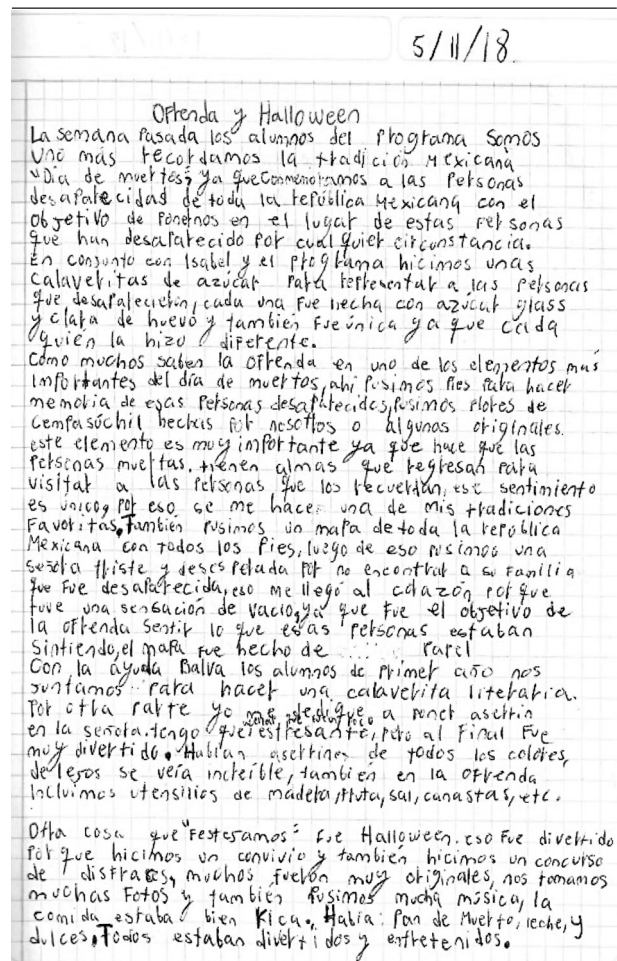 5/11/18
Ofrenda y Halloween
La semana pasada los alumnos del programa somos
uno más recordamos la tradición Mexicana
"Dia de muertos", ya que conmemoramos a las personas
desaparecidad de toda la república Mexicana con el
objetivo de ponernos en el lugar de estas personas
que han desaparecido por cualquier circunstancia.
En conjunto con Isabel y el programa hicimos unas
calaveritas de azúcar para representar a las personas
que desaparecieron, cada una fue hecha con azúcar glass
y clara de huevo y también fue única ya que cada
quién la hizo diferente.
Cómo muchos saben la ofrenda en uno de los elementos más
importantes del día de muertos, ahí pusimos pies para hacer
memoria de esas personas desaparecidas, pusimos flores de
cempasóchil hechas por nosotros o algunas originales.
este elemento es muy importante ya que hace que las
personas muertas. tienen almas que regresan para
visitar a las personas que los recuerdan, ese sentimiento
es único, por eso se me hace una de mis tradiciones
favoritas. También pusimos un mapa de toda la república
Mexicana con todos los pies, luego de eso pusimos una
señora triste y desesperada por no encontrar a su familia
que fue desaparecida, eso me llegó al corazón porque
tuve una sensación de vacío, ya que fue el objetivo de
la ofrenda sentir lo que esas personas estaban
sintiendo, el mapa fue hecho de papel
Con la ayuda Balva los alumnos de primer año nos
juntamos para hacer una calaverita literaria.
Por otra parte yo me dedique a poner aserrin
en la señora. tengo que fue un poco estresante, pero al final fue
muy divertido. Habían aserrines de todos los colores,
de lejos se veía increíble, también en la ofrenda
incluimos utensilios de madera, fruta, sal, canastas, etc.
Otra cosa que "festejamos" fue Halloween. eso fue divertido
por que hicimos un convivio y también hicimos un concurso
de disfraces, muchos fueron muy originales, nos tomamos
muchas fotos y también pusimos mucha música, la
comida estaba bien rica. Había: Pan de Muerto, leche, y
dulces. Todos estaban divertidos y entretenidos.